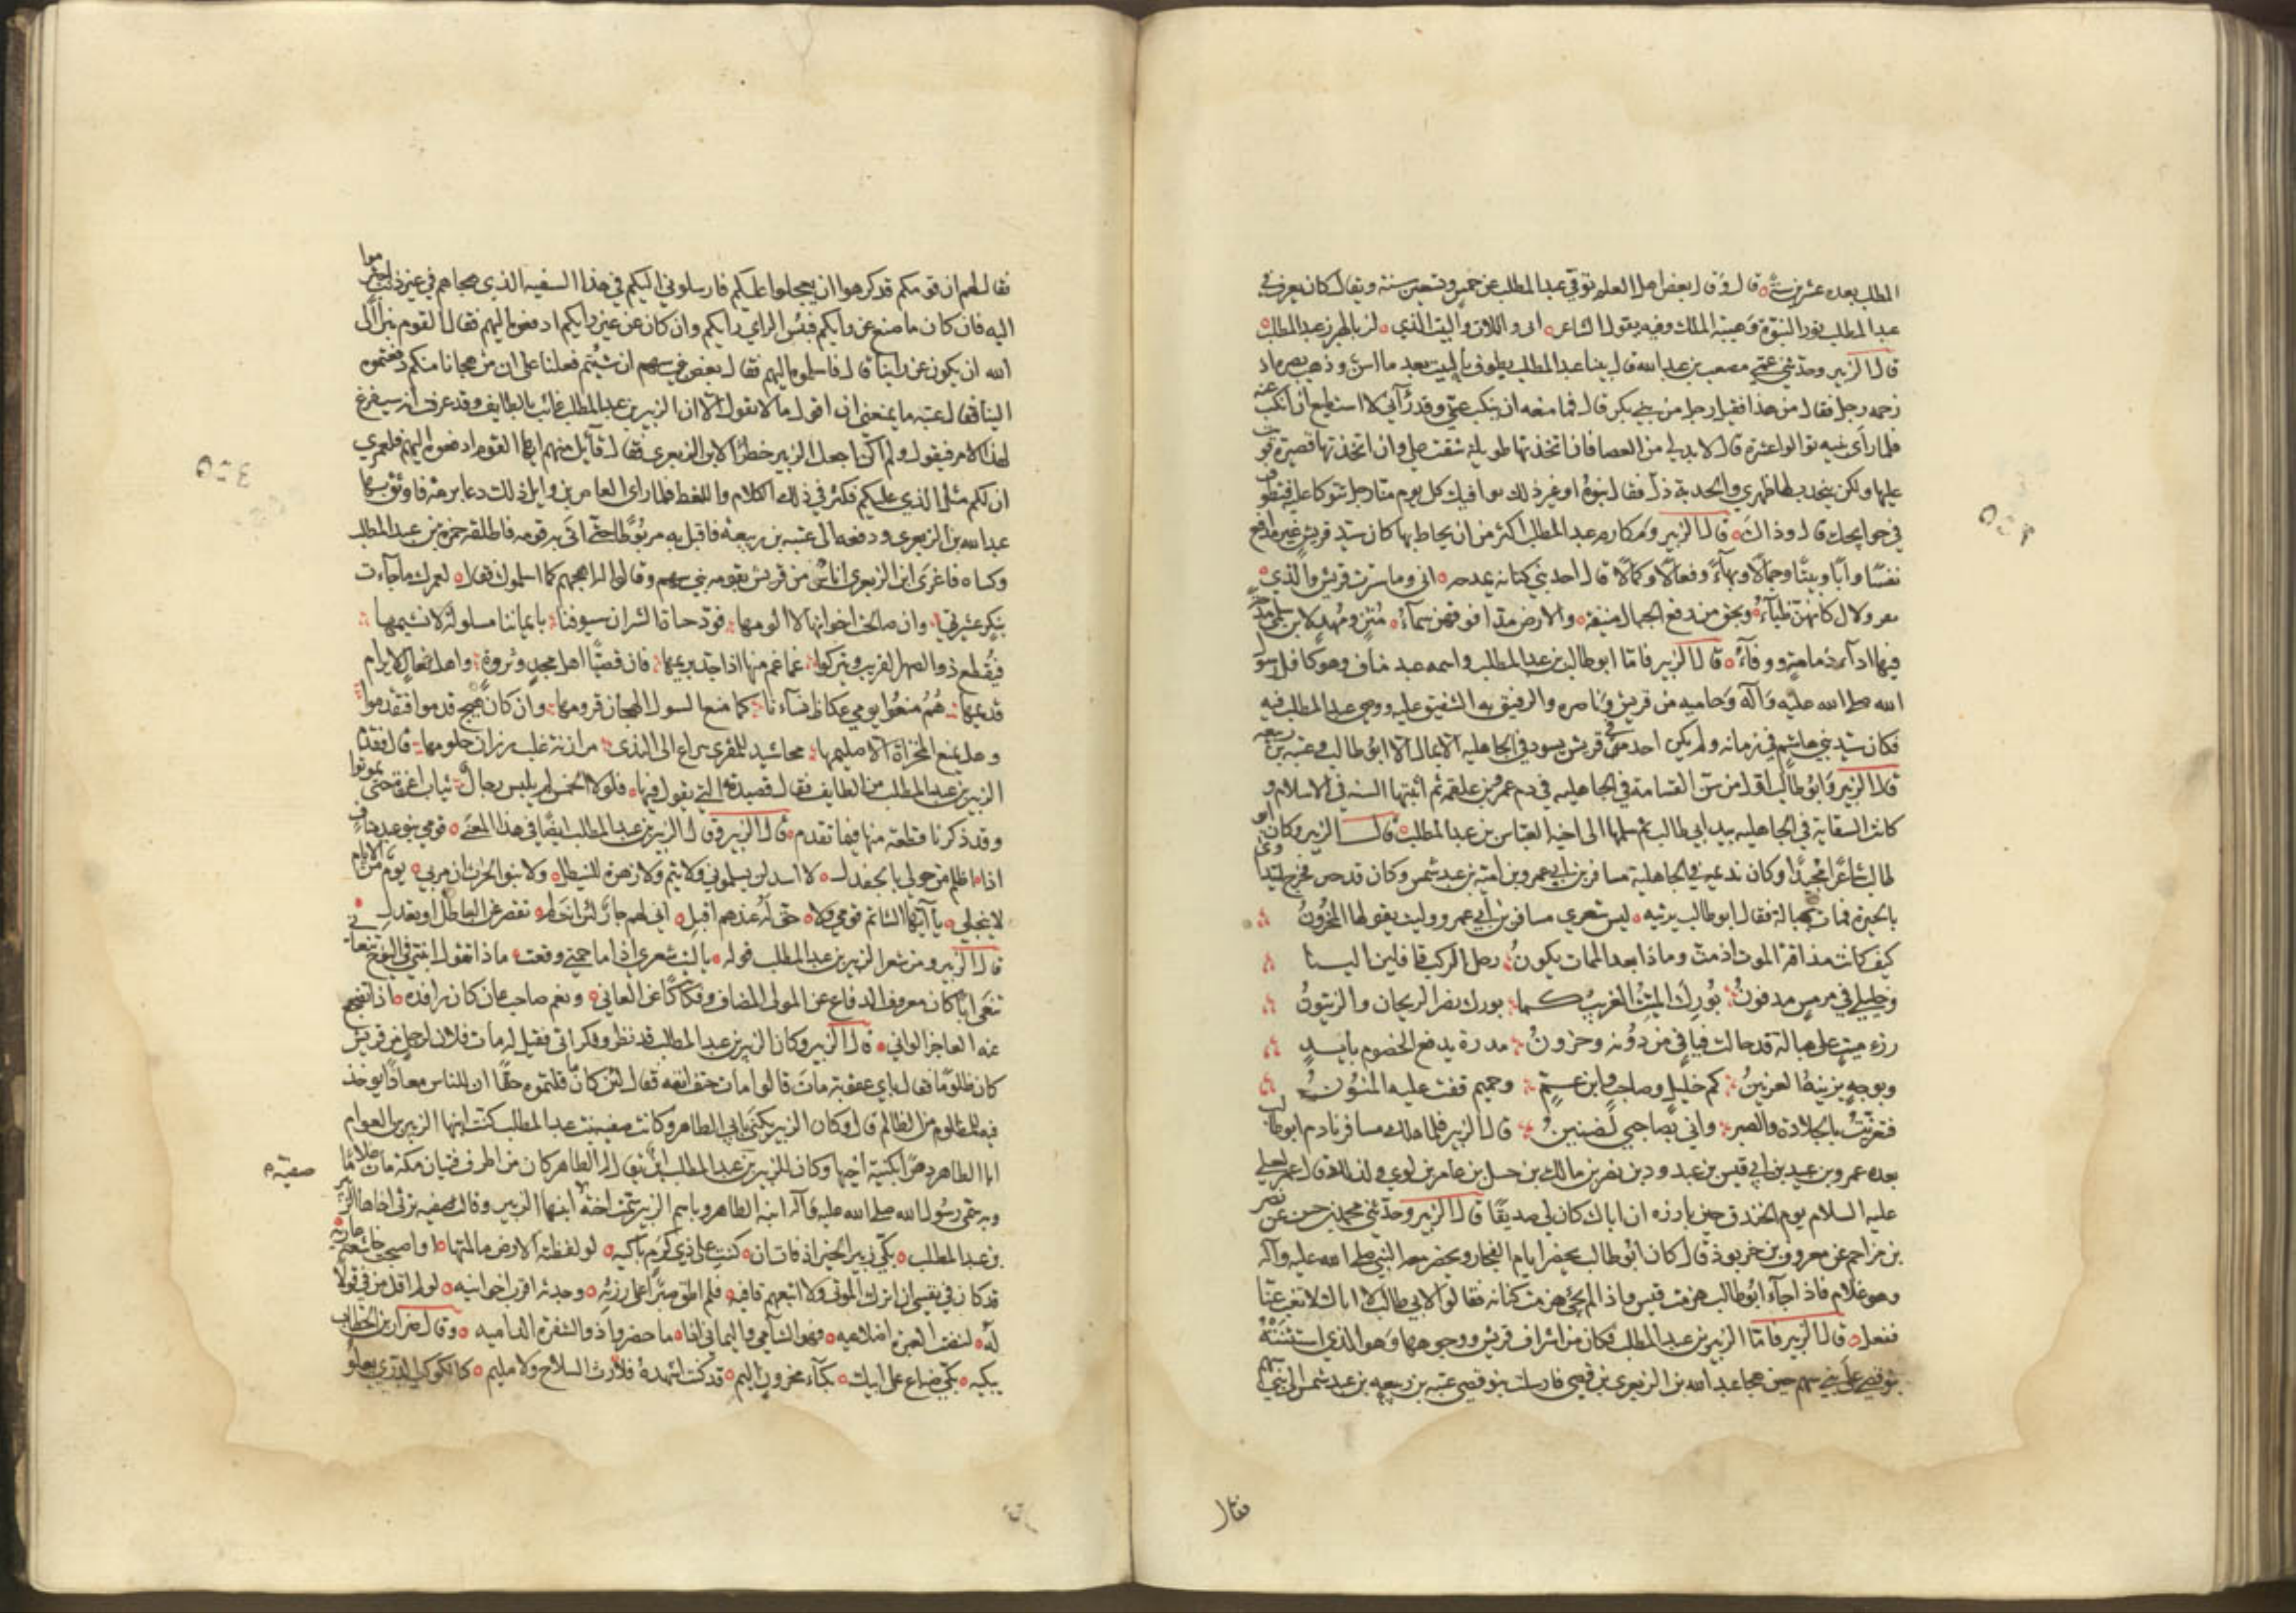 المطلب بعده عشرين سنة ه قال وقال بعض اهل العلم توفي عبد المطلب عن خمس وتسعين سنة ويقال كان يعرف في
عبد المطلب نور النبوة وهيبة الملك وفيه يقول الشاعر ه انى واللات والبيت الذي ه لز بالهرز عبد المطلب ه
قال الزبير وحدثني عمي مصعب بن عبد الله قال بينا عبد المطلب يطوف بالبيت بعد ما اسن وذهب بصره اذ
زحمه رجل فقال من هذا فقيل رجل من بني بكر قال فما منعه ان ينكب عني وقد رآني لا استطيع ان انكب عنه
فلما راى بنيه توالوا عشرة قال لا بد لي من العصا فان اتخذتها طويلة شقت علي وان اتخذتها قصيرة قويت
عليها ولكن ينحدب لها ظهري والحدبة ذل فقال بنوه او غير ذلك يوافيك كل يوم منا رجل تتوكا عليه فتطوف
في حوايجك قال وذاك ه قال الزبير ومكارم عبد المطلب اكثر من ان يحاط بها كان سيد قريش غير مدافع
نفسا وابا وبيتا وجمالا وبهاء وفعالا وكمالا قال احد بني كنانة يمدحه ه اني وما سترت قريش والذي ه
الله صلى الله عليه وآله وحاميه من قريش وناصره والرفيق به الشفيق عليه ووصي عبد المطلب فيه
فكان سيد بني هاشم في زمانه ولم يكن احد من قريش يسود في الجاهلية الا بمال الا ابو طالب وعتبه بن ربيعه
قال الزبير وابو طالب اول من سن القسامة في الجاهليه في دم عمرو بن علقمة ثم اثبتها السنه في الاسلام و
كانت السقاية في الجاهليه بيد ابي طالب ثم سلمها الى اخيه العباس بن عبد المطلب ه قال الزبير وكان ابو
طالب شاعرا مجيدا وكان نديمه في الجاهلية مسافر بن ابي عمرو بن امية بن عبد شمس وكان قد حبن فخرج ليتداوى
بالحيرة فمات بهبالة فقال ابو طالب يرثيه ه ليت شعري مسافر بن ابي عمرو وليت يقولها المحزون
كيف كانت مذاقة الموت اذ مت وماذا بعد الممات يكون رحل الركب قافلين الينا
وخليلي في مرمس مدفون بورك الميت الغريب كما بورك نضر الريحان والزيتون
رزء ميت على هبالة قد حالت فيافي من دونه وحزون مدرة يدفع الخصوم بايد
وبوجه يزينه العرنين كم خليل وصاحب وابن عم وحميم قفت عليه المنون
فتعزيت بالجلادة والصبر واني بصاحبي لضنين قال الزبير فلما هلك مسافر نادم ابو طالب
بعده عمرو بن عبد بن ابي قيس بن عبد ود بن نصر بن مالك بن حسل بن عامر بن لوي ولذلك قال عمر لعلي
عليه السلام يوم الخندق حين بارزه ان اباك كان لي صديقا قال الزبير وحدثني محمد بن حسن عن نصر
بن مزاحم عن معروف بن خربوذ قال كان ابو طالب يحضر ايام الفجار ويحضر معه النبي صلى الله عليه وآله
وهو غلام فاذا جاء ابو طالب هزمت قيس واذا لم يجئ هزمت كنانه فقالوا لابي طالب لا ابا لك لا تغب عنا
ففعل ه قال الزبير فاما الزبير بن عبد المطلب فكان من اشراف قريش ووجوهها وهو الذي استثنته
بنو قصي على بني سهم حين هجا عبد الله بن الزبعرى بني قصي فارسلت بنو قصي عتبه بن ربيعه بن عبد شمس الى بني سهم
فقال
فقال لهم ان قومكم قد كرهوا ان يعجلوا عليكم فارسلوني اليكم في هذا السفيه الذي هجاهم في غير ذنب اجترموا
اليه فان كان ما صنع عن رايكم فبئس الراي رايكم وان كان عن غير رايكم ادفعوه اليهم فقال القوم نبرا الى
الله ان يكون عن راينا قال فاسلموه اليهم فقال بعض بني سهم ان شئتم فعلنا على ان من هجانا منكم دفعتموه
الينا فقال عتبه ما يمنعني ان اقول ما لا تقول الا ان الزبير بن عبد المطلب غائب بالطايف وقد عرفت انه سيفرغ
لهذا الامر فيقول ولم اكن اجعل الزبير خطرا لابن الزبعرى فقال قائل منهم ايها القوم ادفعوه اليهم فلعمري
ان لكم مثل الذي عليكم فكثر في ذلك الكلام واللغط فلما راى العاص بن وايل ذلك دعا برمة فاوثق بها
عبد الله بن الزبعرى ودفعه الى عتبه بن ربيعة فاقبل به مربوطا حتى اتى به قومه فاطلقه حمزة بن عبد المطلب
وكساه فاغرى ابن الزبعرى اناس من قريش بقومه بني سهم وقالوا له اهجهم كما اسلموك فقال ه لعمرك ما جاءت
بنكر عشيرتي وان صالحت اخوانها لا الومها فود جناة الشر ان سيوفنا بايماننا مسلولة لا نشيمها
فيقطع ذو الصهر القريب ويتركوا غماغم منها اذا جد يريمها فان قصيا اهل مجد وثروة واهل فعال لا يرام
قديمها هم منعوا يومي عكاظ نساءنا كما منع الشول الهجان قرومها وان كان هيج قدموا فتقدموا
وهل يمنع المخزاة الا حميمها محاشيد للمقرى سراع الى الندى مرازنة غلب رزان حلومها قال فقدم
الزبير بن عبد المطلب من الطايف فقال قصيدته التي يقول فيها ه فلولا الحمس لم يلبس رجال ثياب اعزة حتى يموتوا
وقد ذكرنا قطعة منها فيما تقدم ه قال الزبير وقال الزبير بن عبد المطلب ايضا في هذا المعنى ه قومي بنو عبد مناف
لا ينجلي ه يا ايها الشاتم قومي ولا ه
قال الزبير ومن شعر الزبير بن عبد المطلب قوله ه يا ليت شعري اذا ما حمتي وقعت ه ماذا تقول ابنتي في النوح تنعاني
تنعى ابا كان معروف الدفاع عن المولى المضاف وفكاكا عن العاني ه ونعم صاحب عان كان رافده ه اذا تضجع
عنه العاجز الواني ه قال الزبير وكان الزبير بن عبد المطلب قد نظر وفكر اتى فقيل له مات فلان لرجل من قريش
كان ظلوما فقال باي عقوبة مات قالوا مات حتف انفه فقال لئن كان ما قلتموه حقا ان للناس معادا يوخذ
فيه للمظلوم من الظالم قال وكان الزبير يكنى بابي الطاهر وكانت صفية بنت عبد المطلب كنت ابنها الزبير بن العوام
ابا الطاهر دهرا بكنية اخيها وكان للزبير بن عبد المطلب ابن يقال له الطاهر كان من اظرف فتيان مكة مات غلاما
صفية ه
وبه سمى رسول الله صلى الله عليه وآله ابنه الطاهر وباسم الزبير سمت اخته ابنها الزبير وقالت صفيه ترثي اخاها الزبير
بن عبد المطلب ه بكي زبير الخير اذ فات ان ه كنت على ذي كرم باكيه ه لو لفظته الارض ما لمتها ه او اصبحت خاشعة عاريه
قد كان في نفسي ان اترك الموتى ولا اتبعهم قافيه ه فلم اطق صبرا على رزئه ه وجدته اقرب اخوانيه ه لو لم اقل من في قولا
له ه لقضت العبرة اضلاعيه ه فهو الشآمي واليماني اذا ه ما حضروا ذو الشفرة الداميه ه وقال ضرار بن الخطاب
يبكيه ه بكي ضباع على ابيك ه بكاء محزون اليم ه قد كنت انشده فلا رث السلاح ولا سليم ه كالكوكب الدري يعلو